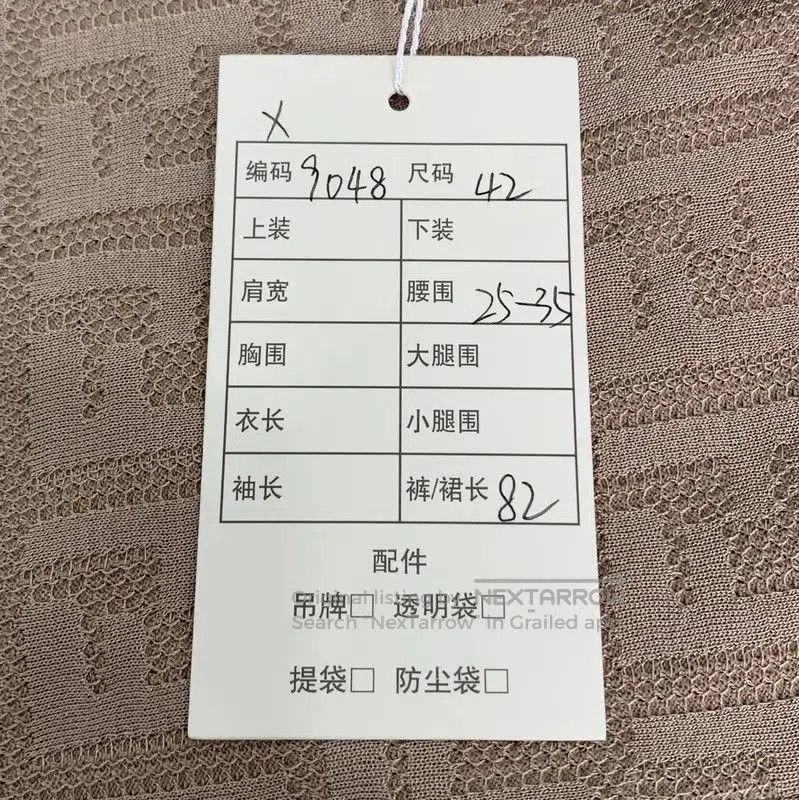 X
编码 9048 尺码 42
上装 下装
肩宽 腰围 25-35
胸围 大腿围
衣长 小腿围
袖长 裤/裙长 82
配件
Original listing by NEXTARROW
吊牌□ 透明袋□
Search "NexTarrow" in Grailed app
提袋□ 防尘袋□